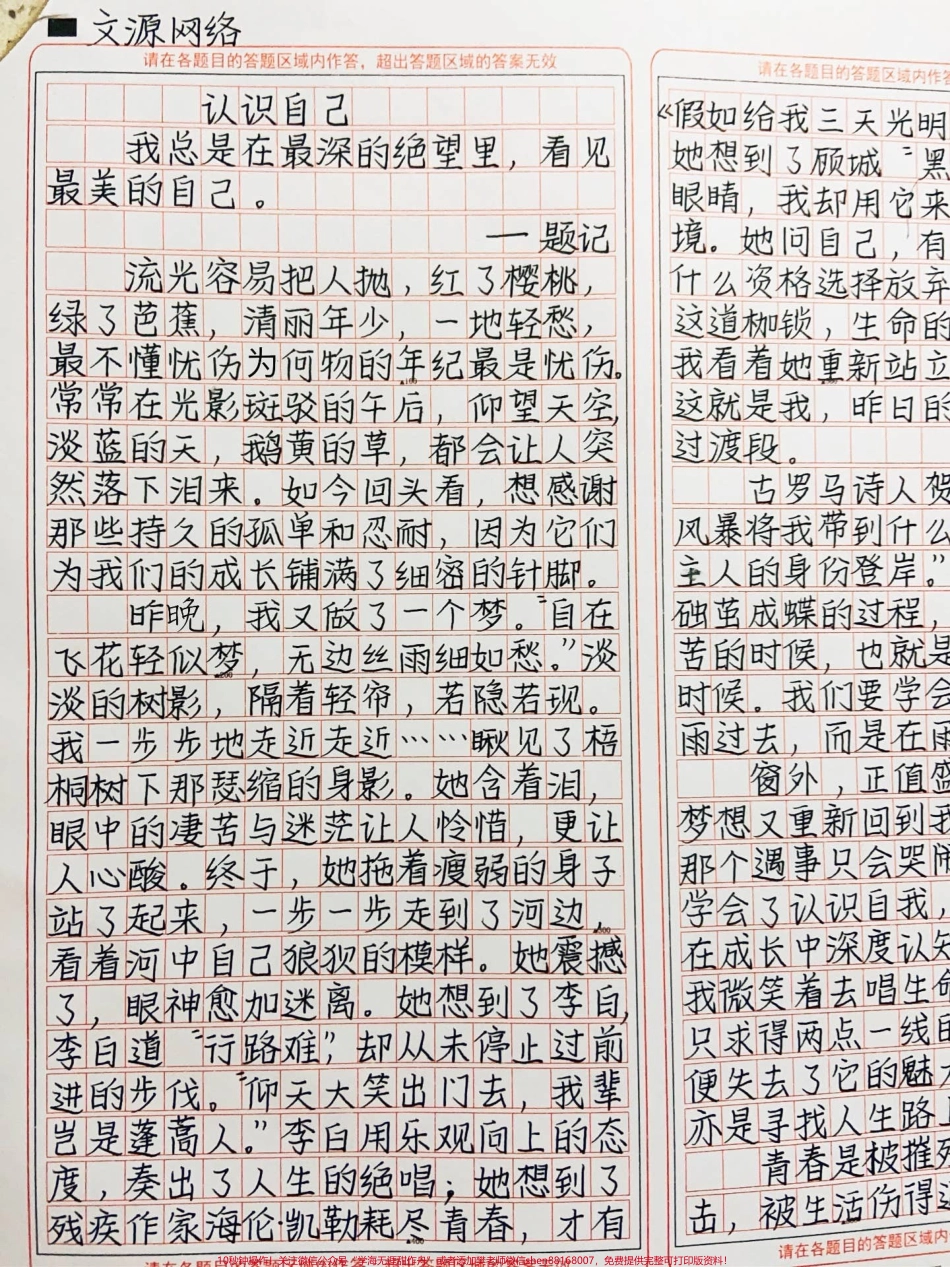 文源网络
请在各题目的答题区域内作答，超出答题区域的答案无效
认识自己
我总是在最深的绝望里，看见
最美的自己。
一题记
流光容易把人抛，红了樱桃，
绿了芭蕉，清丽年少，一地轻愁，
最不懂忧伤为何物的年纪最是忧伤。
常常在光影斑驳的午后，仰望天空，
淡蓝的天，鹅黄的草，都会让人突
然落下泪来。如今回头看，想感谢
那些持久的孤单和忍耐，因为它们
为我们的成长铺满了细密的针脚。
昨晚，我又做了一个梦。“自在
飞花轻似梦，无边丝雨细如愁。”淡
淡的树影，隔着轻帘，若隐若现。
我一步步地走近走近……瞅见了梧
桐树下那瑟缩的身影。她含着泪，
眼中的凄苦与迷茫让人怜惜，更让
人心酸。终于，她拖着瘦弱的身子
站了起来，一步一步走到了河边，
看着河中自己狼狈的模样。她震撼
了，眼神愈加迷离。她想到了李白，
李白道“行路难”，却从未停止过前
进的步伐。“仰天大笑出门去，我辈
岂是蓬蒿人。”李白用乐观向上的态
度，奏出了人生的绝唱；她想到了
残疾作家海伦·凯勒耗尽青春，才有
请在各题目的答题区域内作答
《假如给我三天光明
她想到了顾城“黑
眼睛，我却用它来
境。她问自己，有
什么资格选择放弃
这道枷锁，生命的
我看着她重新站立
这就是我，昨日的
过渡段。
古罗马诗人贺
风暴将我带到什么
主人的身份登岸。”
础茧成蝶的过程，
苦的时候，也就是
时候。我们要学会
雨过去，而是在雨
窗外，正值盛
梦想又重新回到我
那个遇事只会哭闹
学会了认识自我，
在成长中深度认知
我微笑着去唱生命
只求得两点一线的
便失去了它的魅力
亦是寻找人生路上
青春是被摧残
击，被生活伤得遍
请在各题目的答题区域内